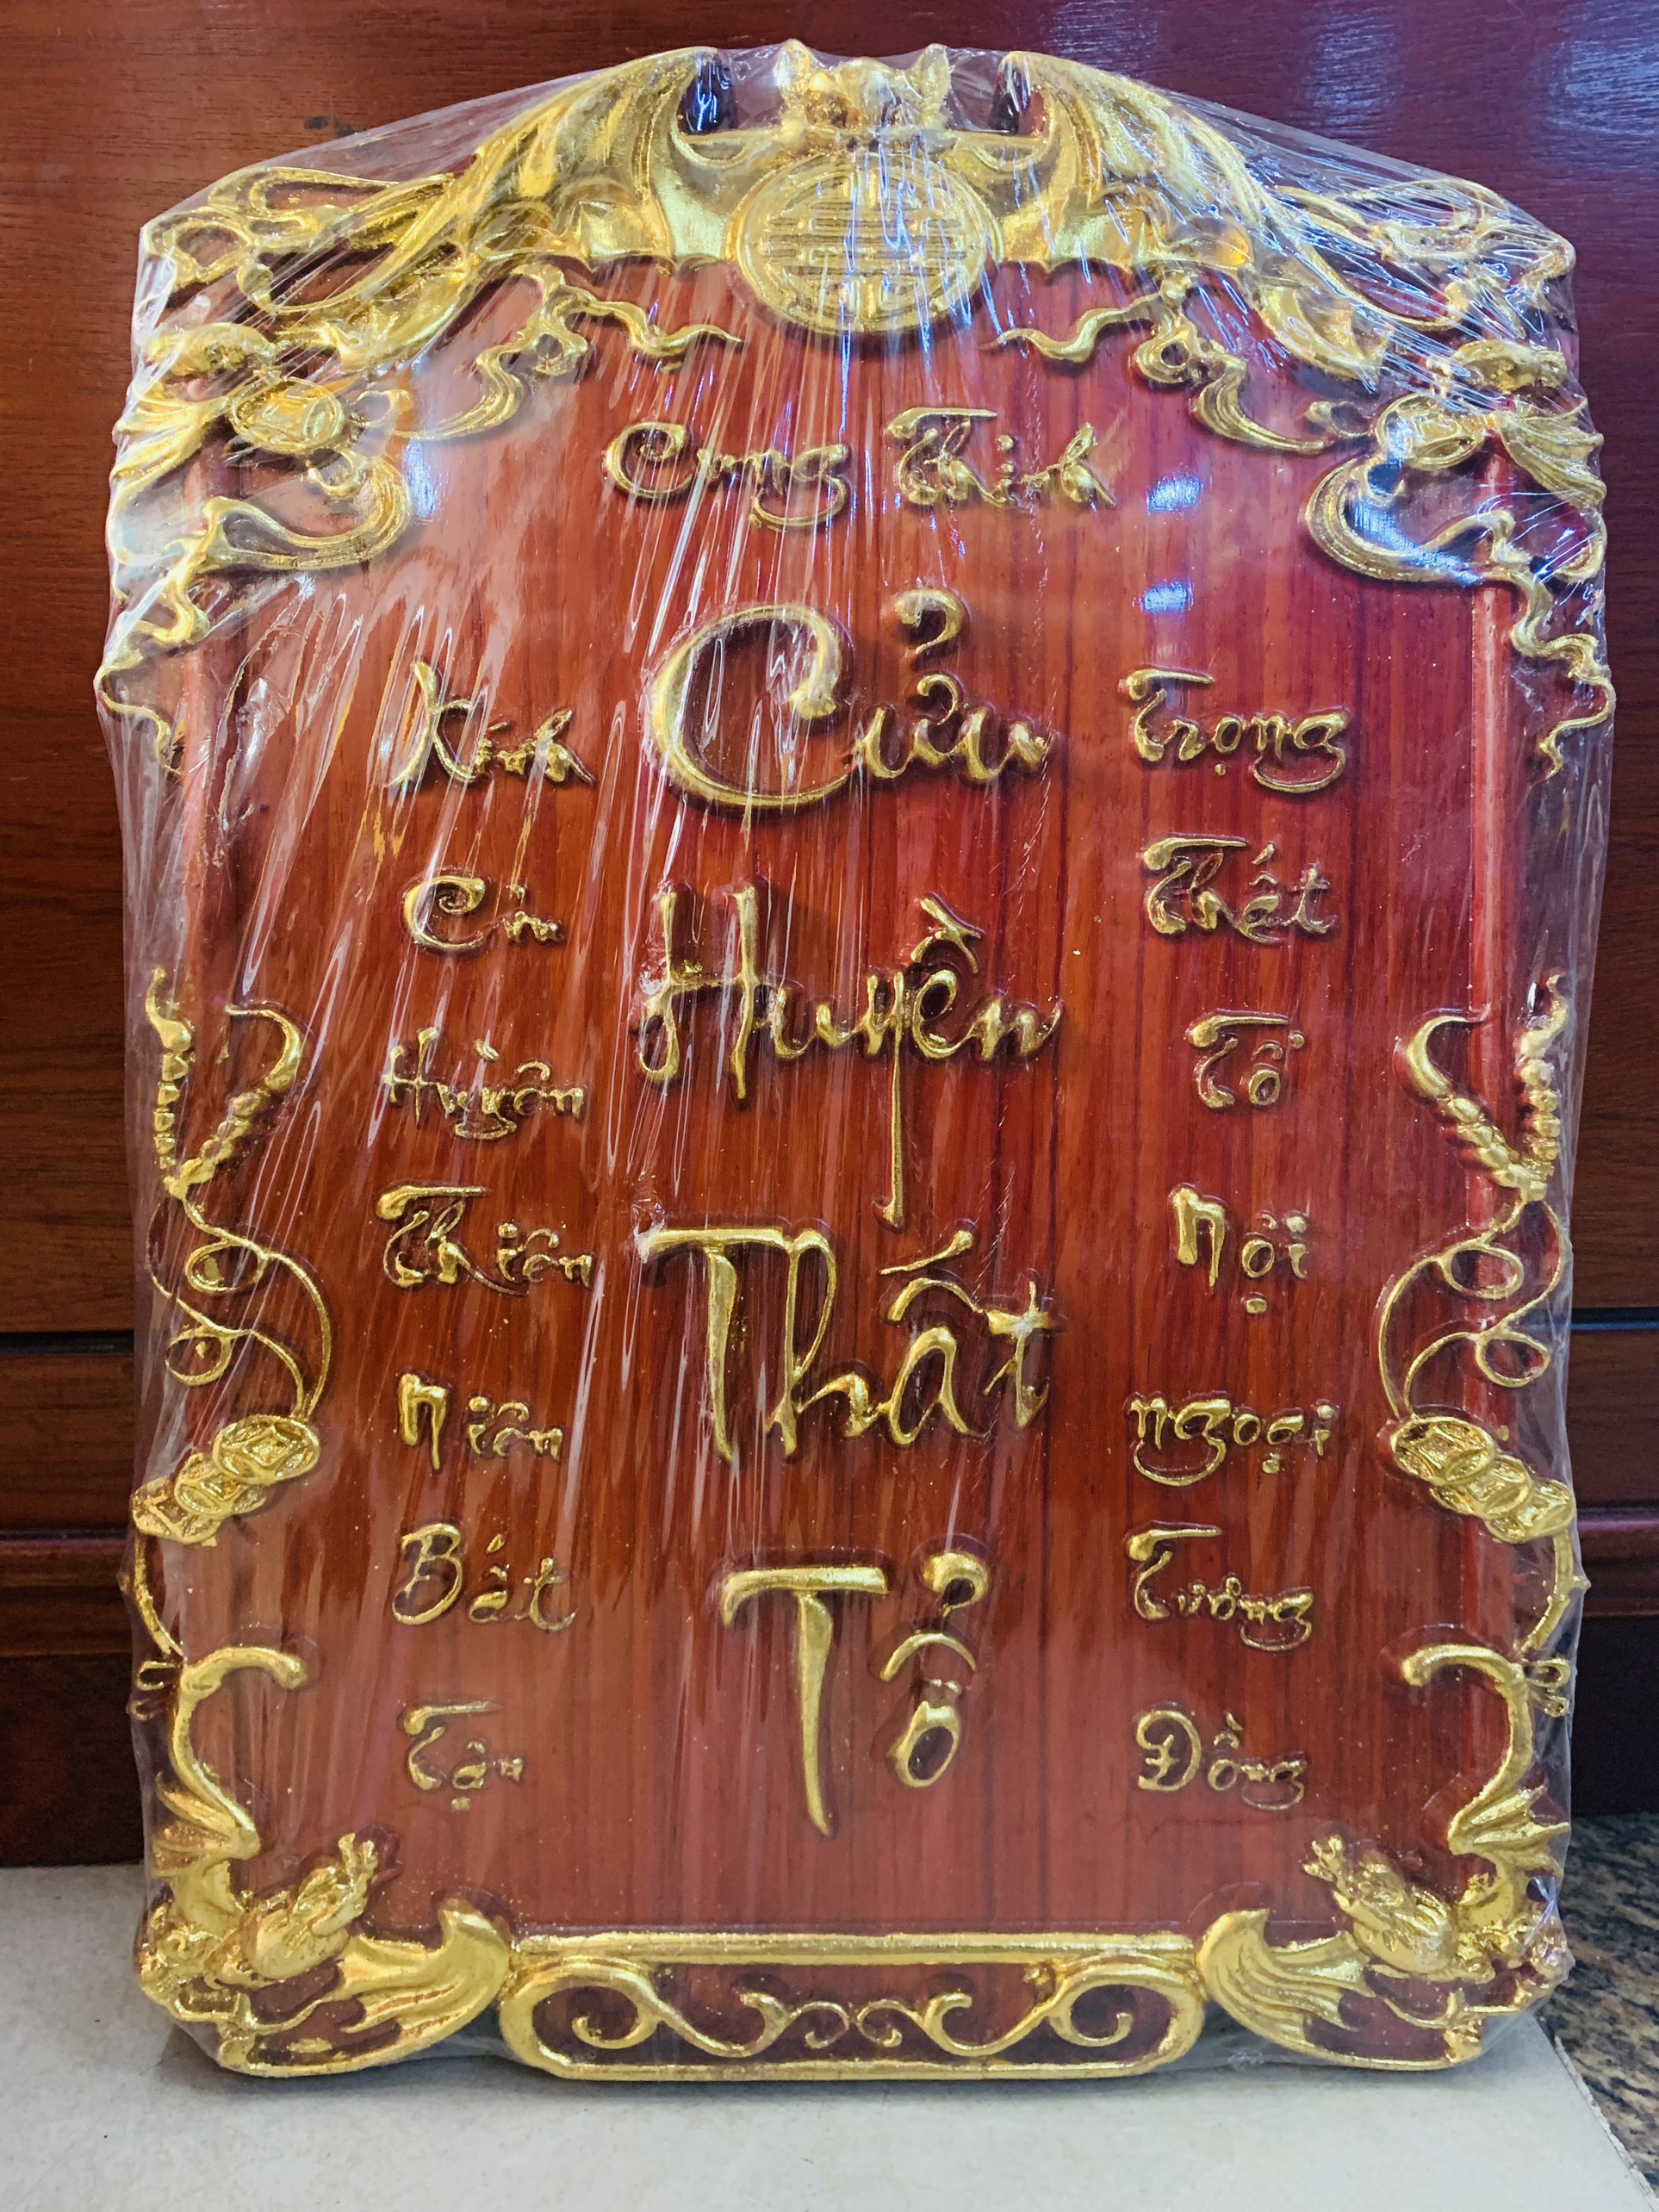 Cung Thỉnh
Cửu
Huyền
Thất
Tổ
Kính
Cửu
Huyền
Thiên
Niên
Bất
Tận
Trọng
Thất
Tổ
Nội
Ngoại
Tương
Đồng